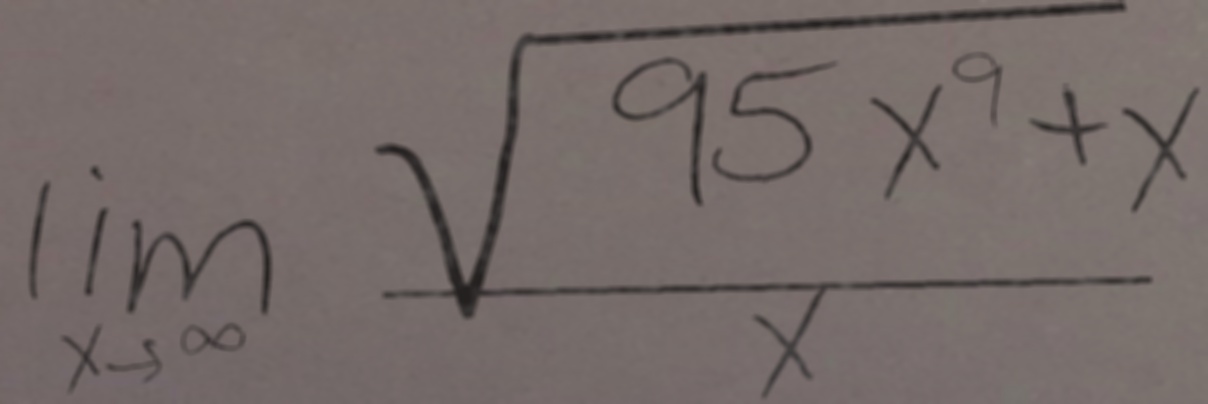 \lim_{x \to \infty} \frac{\sqrt{95x^9+x}}{x}